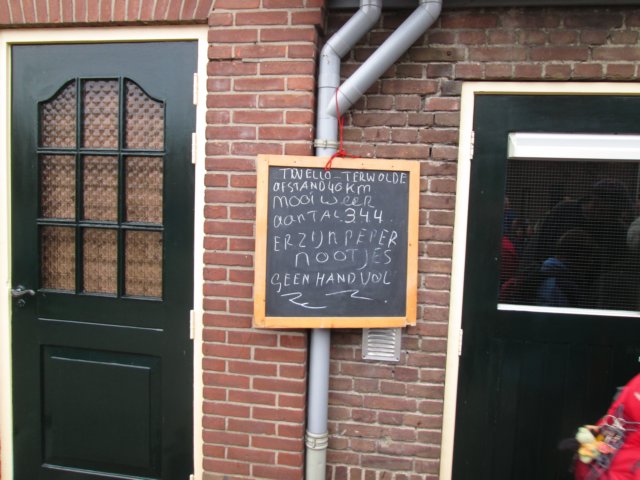 TWELLO - TERWOLDE
AFSTAND 46 KM
MOOI WEER
AANTAL 344
ER ZIJN PEPER
NOOTJES
GEEN HAND VOL